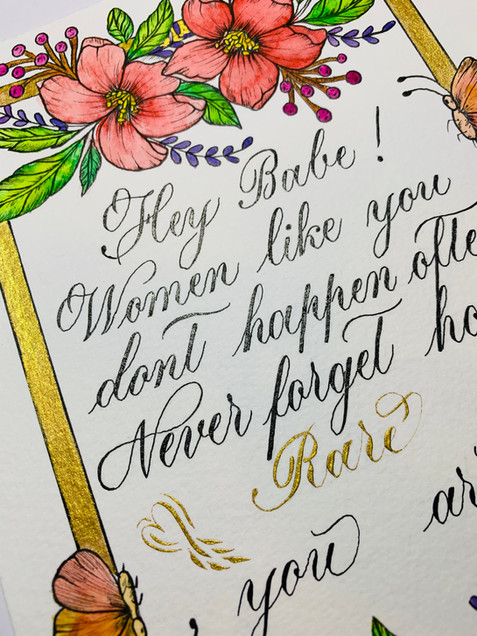 Hey Babe !
Women like you
dont happen ofte
Never forget ho
Rare
you ar